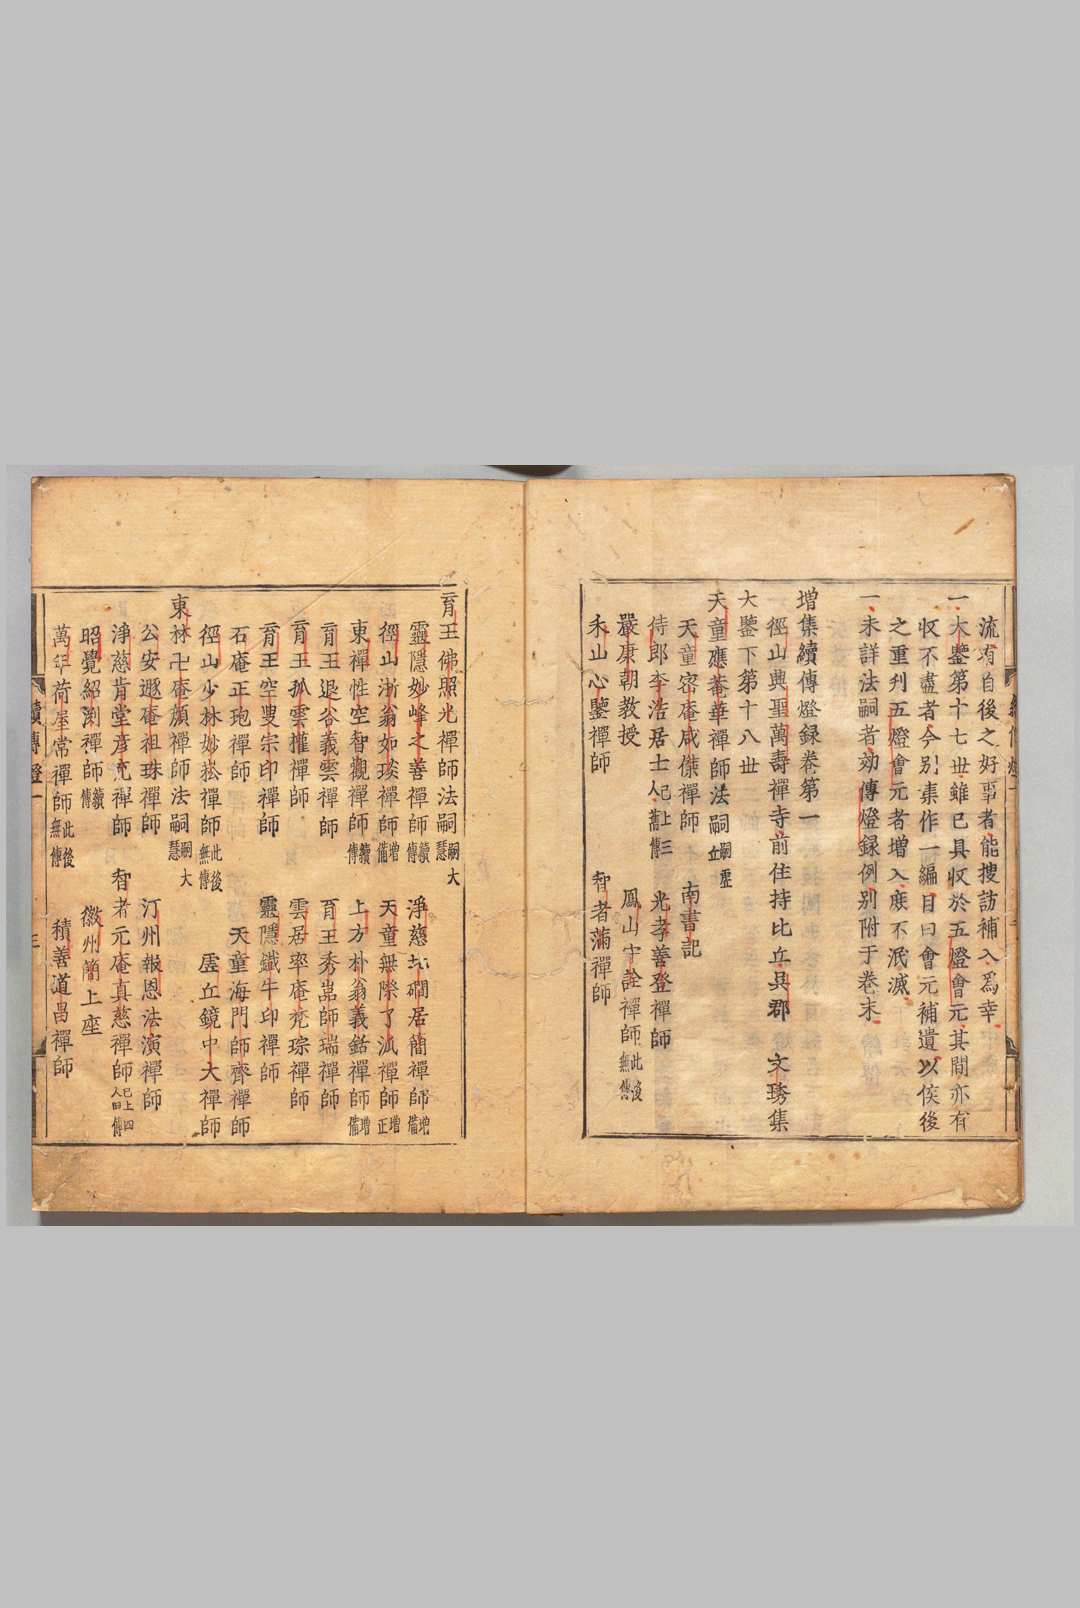 流有自後之好事者能搜訪補入爲幸
一大鑒第十七世雖已具収於五燈會元其間亦有
収不盡者今别集作一編目曰會元補遺以俟後
之重刋五燈會元者増入庶不泯滅
一未詳法嗣者効傳燈録例别附于卷末
増集續傳燈録卷第一
徑山興聖萬壽禪寺前住持比丘呉郡 文琇集
大鑒下第十八世
天童應菴華禪師法嗣嗣虗丘
天童密庵咸傑禪師 南書記
侍郎李浩居士已上三人舊傳 光孝善登禪師
嚴康朝教授 鳳山守詮禪師此後無傳
禾山心鑒禪師 智者蒲禪師
育王佛照光禪師法嗣嗣大慧
靈隱妙峰之善禪師續傳 淨慈北磵居簡禪師増備
徑山浙翁如琰禪師増備 天童無際了派禪師増正
東禪性空智觀禪師續傳 上方朴翁義銛禪師増備
育王退谷義雲禪師 育王秀嵓師瑞禪師
育王孤雲權禪師 雲居率庵梵琮禪師
育王空叟宗印禪師 靈隱鐵牛印禪師
石庵正玸禪師 天童海門師齊禪師
徑山少林妙菘禪師此後無傳 虗丘鏡中大禪師
東林卍庵顔禪師法嗣嗣大慧
公安遯庵祖珠禪師 汀州報恩法演禪師
淨慈肯堂彦充禪師 智者元庵真慈禪師已上四人曰傳
昭覺紹渕禪師續傳 徽州簡上座
萬年荷屋常禪師此後無傳 積善道昌禪師
續傳燈一
三